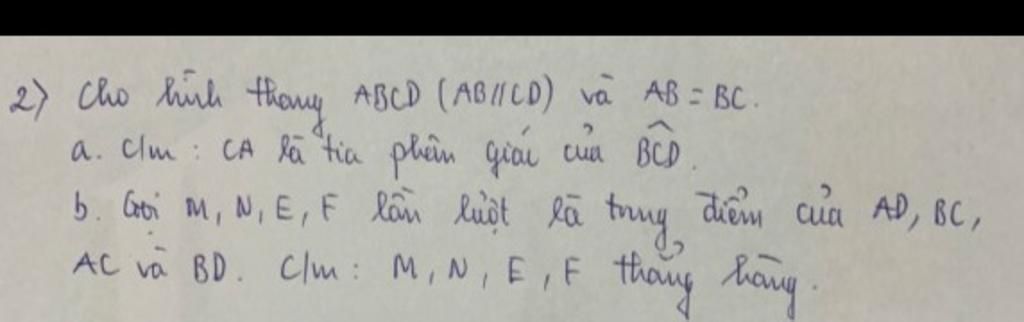 2) Cho hình thang ABCD (AB//CD) và AB = BC.
a. C/m : CA là tia phân giác của \widehat{BCD}.
b. Gọi M, N, E, F lần lượt là trung điểm của AD, BC,
AC và BD. C/m : M, N, E, F thẳng hàng.